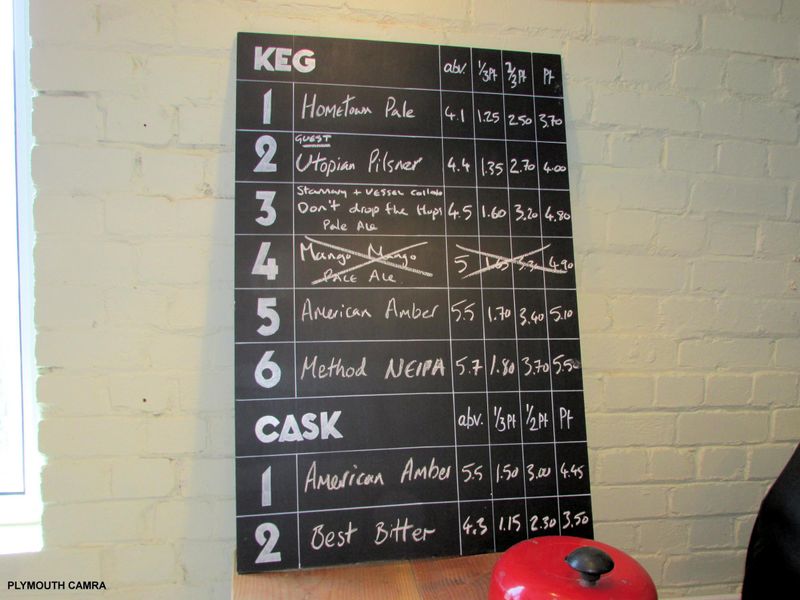 KEG abv. 1/3Pt 2/3Pt Pt
1 Hometown Pale 4.1 1.25 2.50 3.70
GUEST
2 Utopian Pilsner 4.4 1.35 2.70 4.00
Stannary + Vessel Collab
3 Don't drop the Hops 4.5 1.60 3.20 4.80
Pale Ale
4 Mango Mango 5 1.65 3.30 4.90
Pale Ale
5 American Amber 5.5 1.70 3.40 5.10
6 Method NEIPA 5.7 1.80 3.70 5.50
CASK abv. 1/3Pt 1/2Pt Pt
1 American Amber 5.5 1.50 3.00 4.45
2 Best Bitter 4.3 1.15 2.30 3.50
PLYMOUTH CAMRA